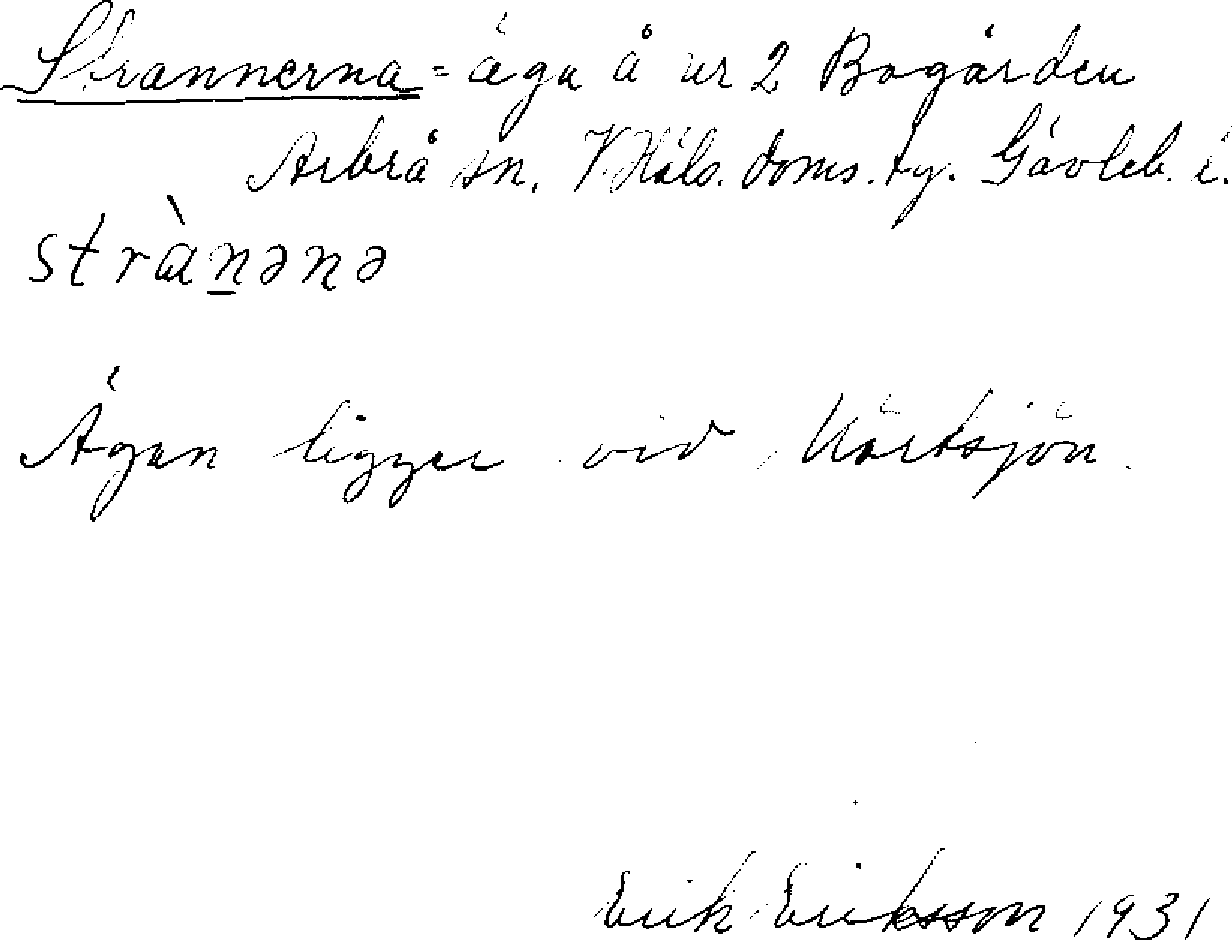 Strannerna = äga å nr 2 Bogården
Arbrå sn. V Häls. doms. tg. Gävleb. l.
strànənə
Ägan ligger vid
Erik Eriksson 1931